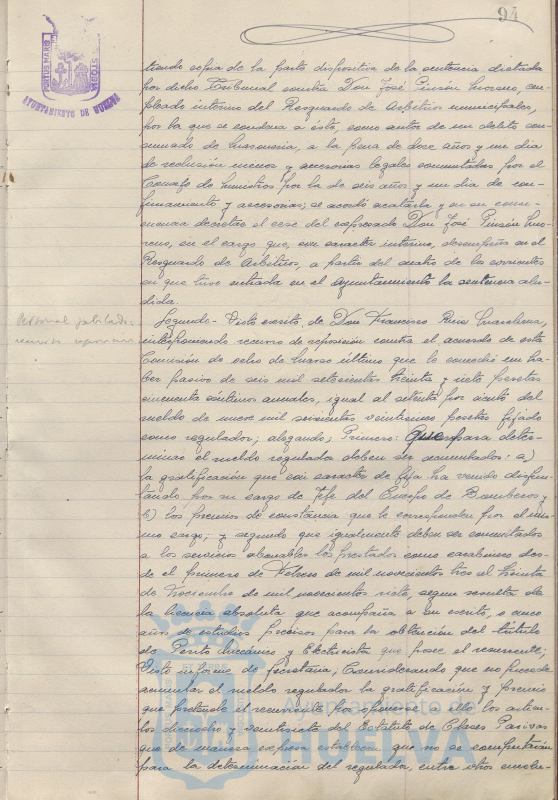 94
PORTUS MARIS
AYUNTAMIENTO DE HUELVA
tiendo copia de la parte dispositiva de la sentencia dictada
por dicho Tribunal contra Don José Pinzón Moreno, em-
pleado interino del Resguardo de Arbitrios municipales,
por la que se condena a éste, como autor de un delito con-
sumado de masonería, a la pena de doce años y un día
de reclusión menor y accesorias legales conmutadas por el
Consejo de Ministros por la de seis años y un día de con-
finamiento y accesorias; se acordó acatarla y en su conse-
cuencia decretar el cese del expresado Don José Pinzón Mo-
reno, en el cargo que, con caracter interino, desempeña en el
Resguardo de Arbitrios, a partir del cuatro de los corrientes
en que tuvo entrada en el Ayuntamiento la sentencia alu-
dida.
Personal jubilado:
recurso reposición
Segundo- Visto escrito de Don Francisco Ruiz Marchena,
interponiendo recurso de reposición contra el acuerdo de esta
Comisión de ocho de marzo último que le concedió un ha-
ber pasivo de seis mil setecientas treinta y siete pesetas
cincuenta céntimos anuales, igual al setenta por ciento del
sueldo de nueve mil seiscientas veinticinco pesetas fijado
como regulador; alegando; Primero: Que para deter-
minar el sueldo regulador deben ser acumulados: a)
la gratificación que con caracter de fija ha venido disfru-
tando por su cargo de Jefe del Cuerpo de Bomberos y
b) los premios de constancia que le corresponden por el mis-
mo cargo; y segundo que igualmente deben ser computados
a los servicios abonables los prestados como carabinero des-
de el primero de Febrero de mil novecientos tres al treinta
de Noviembre de mil novecientos siete, segun resulta de
la licencia absoluta que acompaña a su escrito, o cinco
años de estudios precisos para la obtención del título
de Perito Mecánico y Electricista que posee el recurrente;
Visto informe de Secretaría; Considerando que no puede
acumular al sueldo regulador la gratificación y premio
que pretende el recurrente por oponerse a ello los artícu-
los dieciocho y veintisiete del Estatuto de Clases Pasivas
que de manera expresa establecen que no se computarán
para la determinación del regulador, entre otros emolu-
Ayuntamiento de
HUELVA